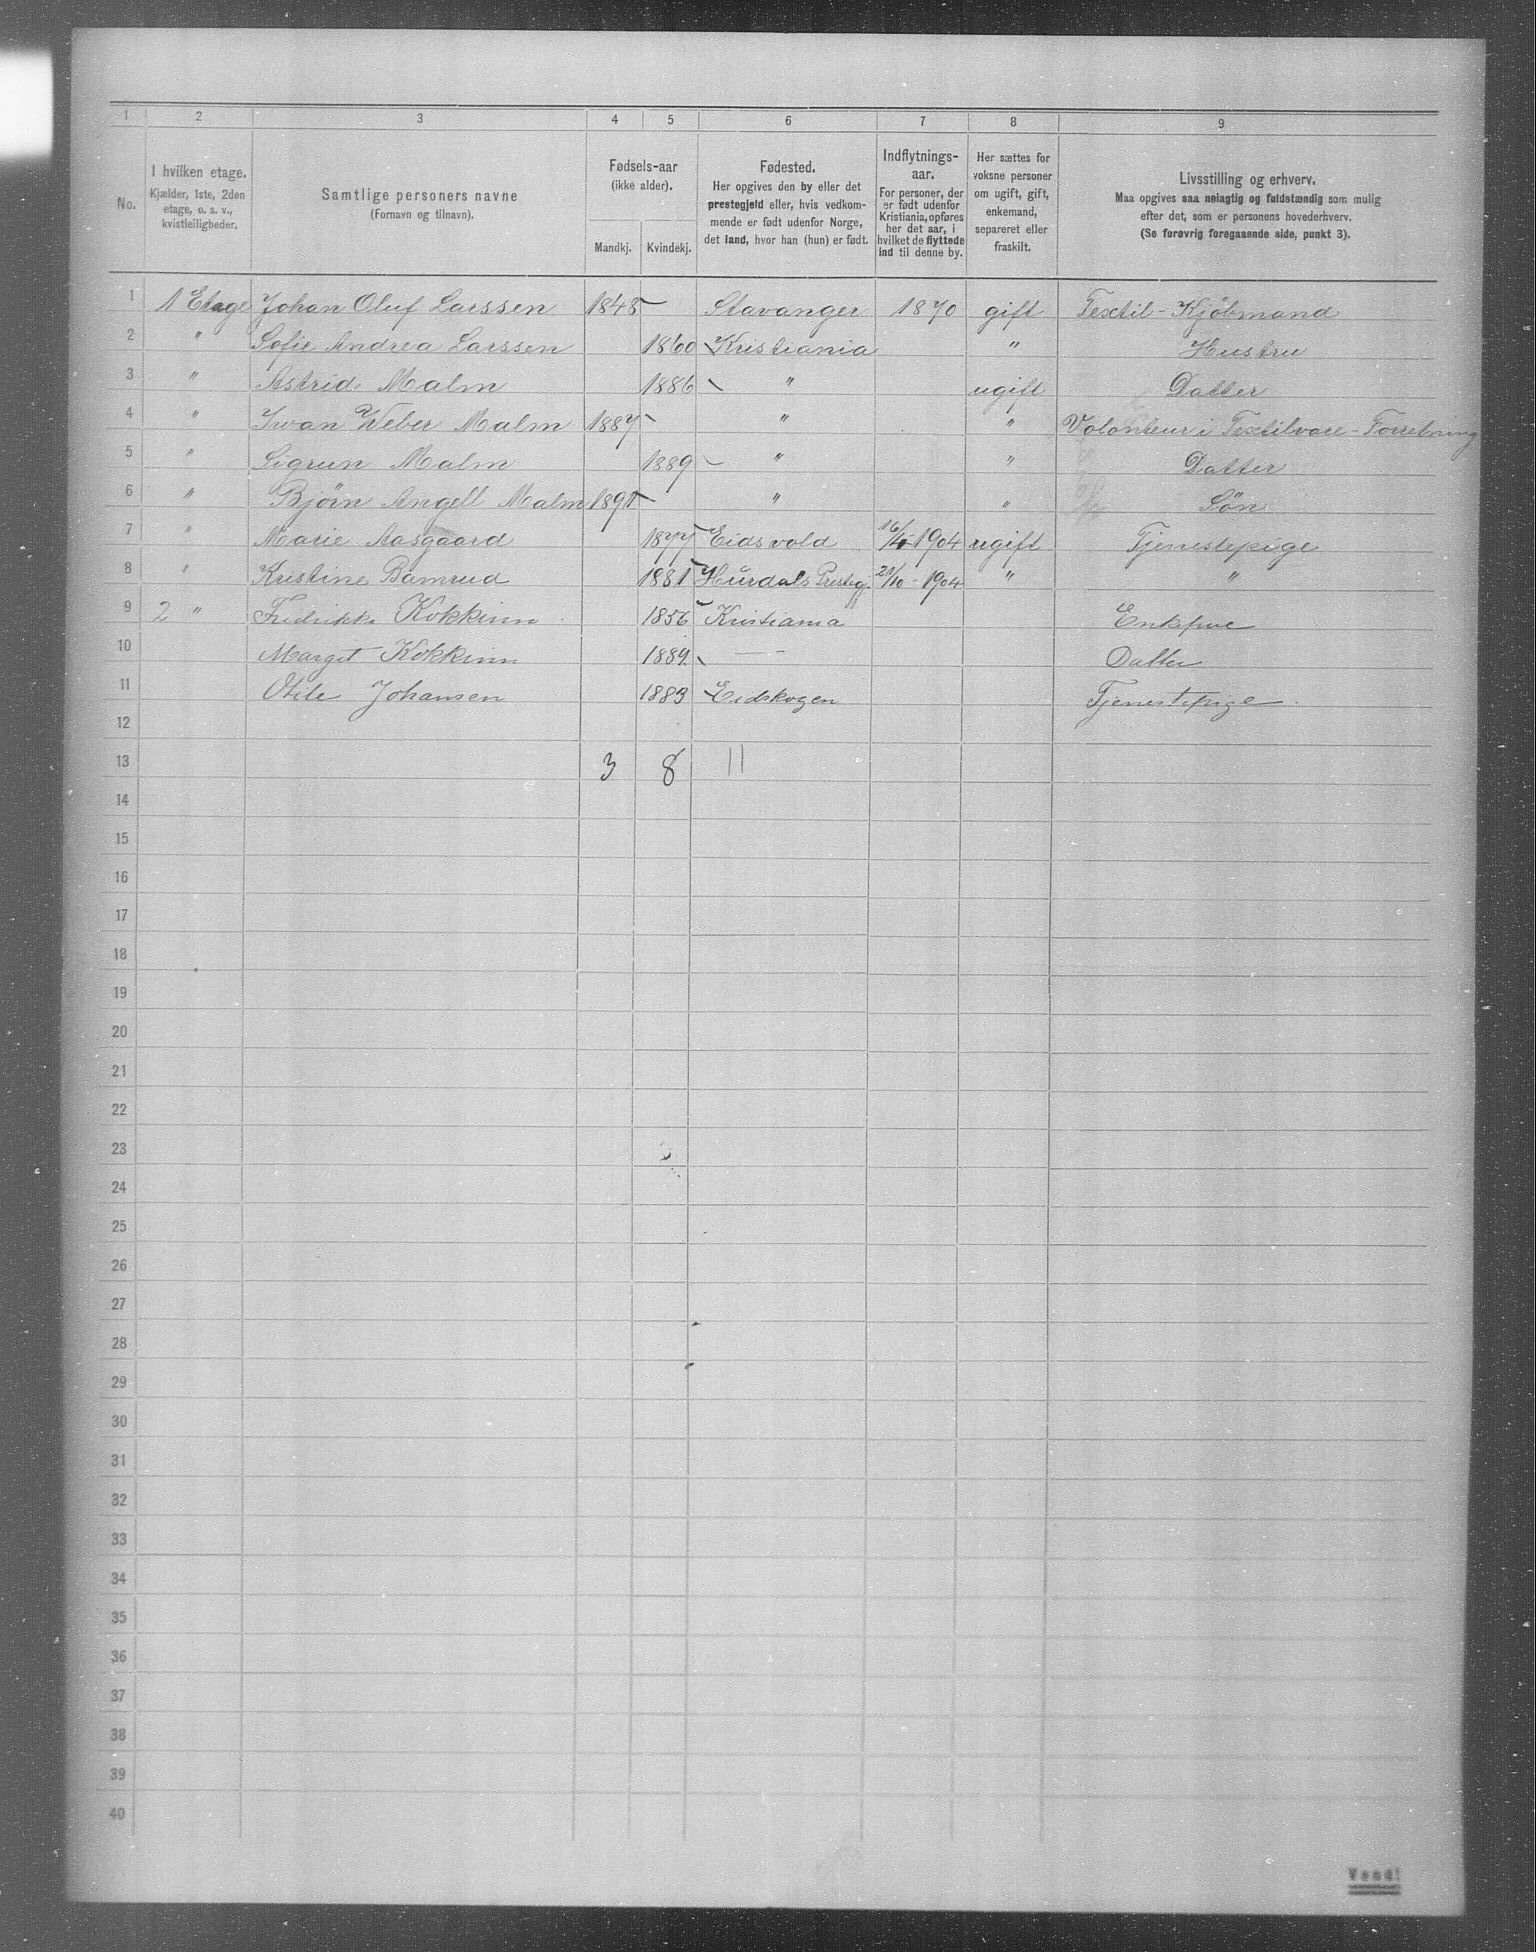 1 2 3 4 5 6 7 8 9
No.
I hvilken etage.
Kjælder, 1ste, 2den
etage, o. s. v.,
kvistleiligheder.
Samtlige personers navne
(Fornavn og tilnavn).
Fødsels-aar
(ikke alder).
Mandkj. Kvindekj.
Fødested.
Her opgives den by eller det
prestegjeld eller, hvis vedkom-
mende er født udenfor Norge,
det land, hvor han (hun) er født.
Indflytnings-
aar.
For personer, der
er født udenfor
Kristiania, opføres
her det aar, i
hvilket de flyttede
ind til denne by.
Her sættes for
voksne personer
om ugift, gift,
enkemand,
separeret eller
fraskilt.
Livsstilling og erhverv.
Maa opgives saa nøiagtig og fuldstændig som mulig
efter det, som er personens hovederhverv.
(Se forøvrig foregaaende side, punkt 3).
1 1 Etage Johan Oluf Larssen 1848 Stavanger 1870 gift Textil-Kjøbmand
2 " Sofie Andrea Larssen 1860 Kristiania " Hustru
3 " Astrid Malm 1886 " ugift Datter
4 " Iwan Weber Malm 1887 " " Volonteur i Textilvare-Forretning
5 " Sigrun Malm 1889 " " Datter
6 " Bjørn Angell Malm 1891 " " Søn
7 " Marie Aasgaard 1877 Eidsvold 1904 ugift Tjenestepige
8 " Kristine Bamrud 1881 Hurdals Presteg. 21/10 - 1904 " "
9 2 " Fredrikke Kokkinn 1856 Kristiania Enkefrue
10 Margit Kokkinn 1889 — Datter
11 Otile Johansen 1883 Eidskogen Tjenestepige
12
13 3 8 11
14
15
16
17
18
19
20
21
22
23
24
25
26
27
28
29
30
31
32
33
34
35
36
37
38
39
40
Vend!